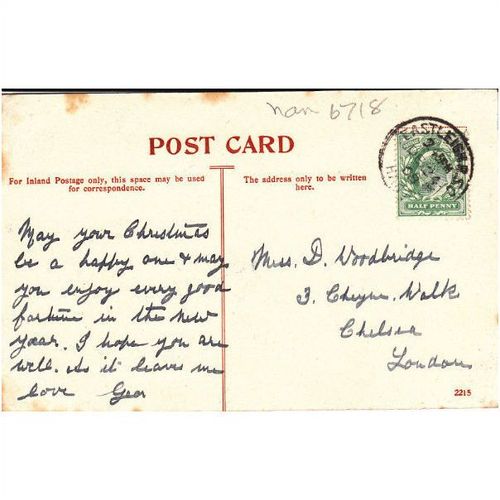 nan 6718
POST CARD
For Inland Postage only, this space may be used
for correspondence.
The address only to be written
here.
HALF PENNY
May your Christmas
be a happy one & may
you enjoy every good
fortune in the new
year. I hope you are
well. As it leaves me
love Geo
Miss. D. Woodbridge
3. Cheyne Walk
Chelsea
London
2215